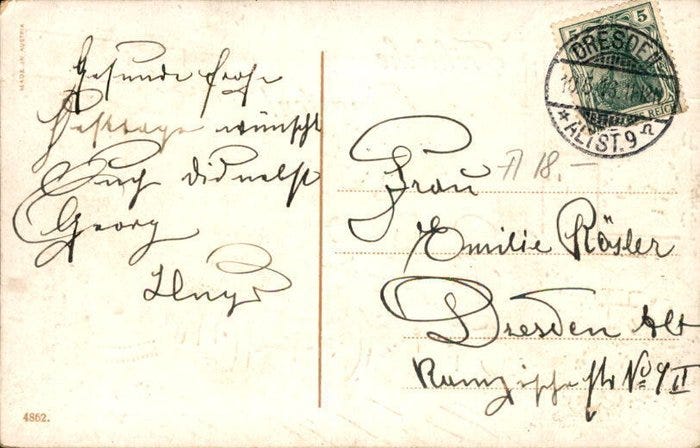 MADE IN AUSTRIA
Gesunde frohe
Festtage wünscht
Euch
Georg
5
REICH
DRESDEN
* ALTST. 9 n
18.-
Frau
Emilie Rösler
Dresden Alt
str No 9 II
4862.